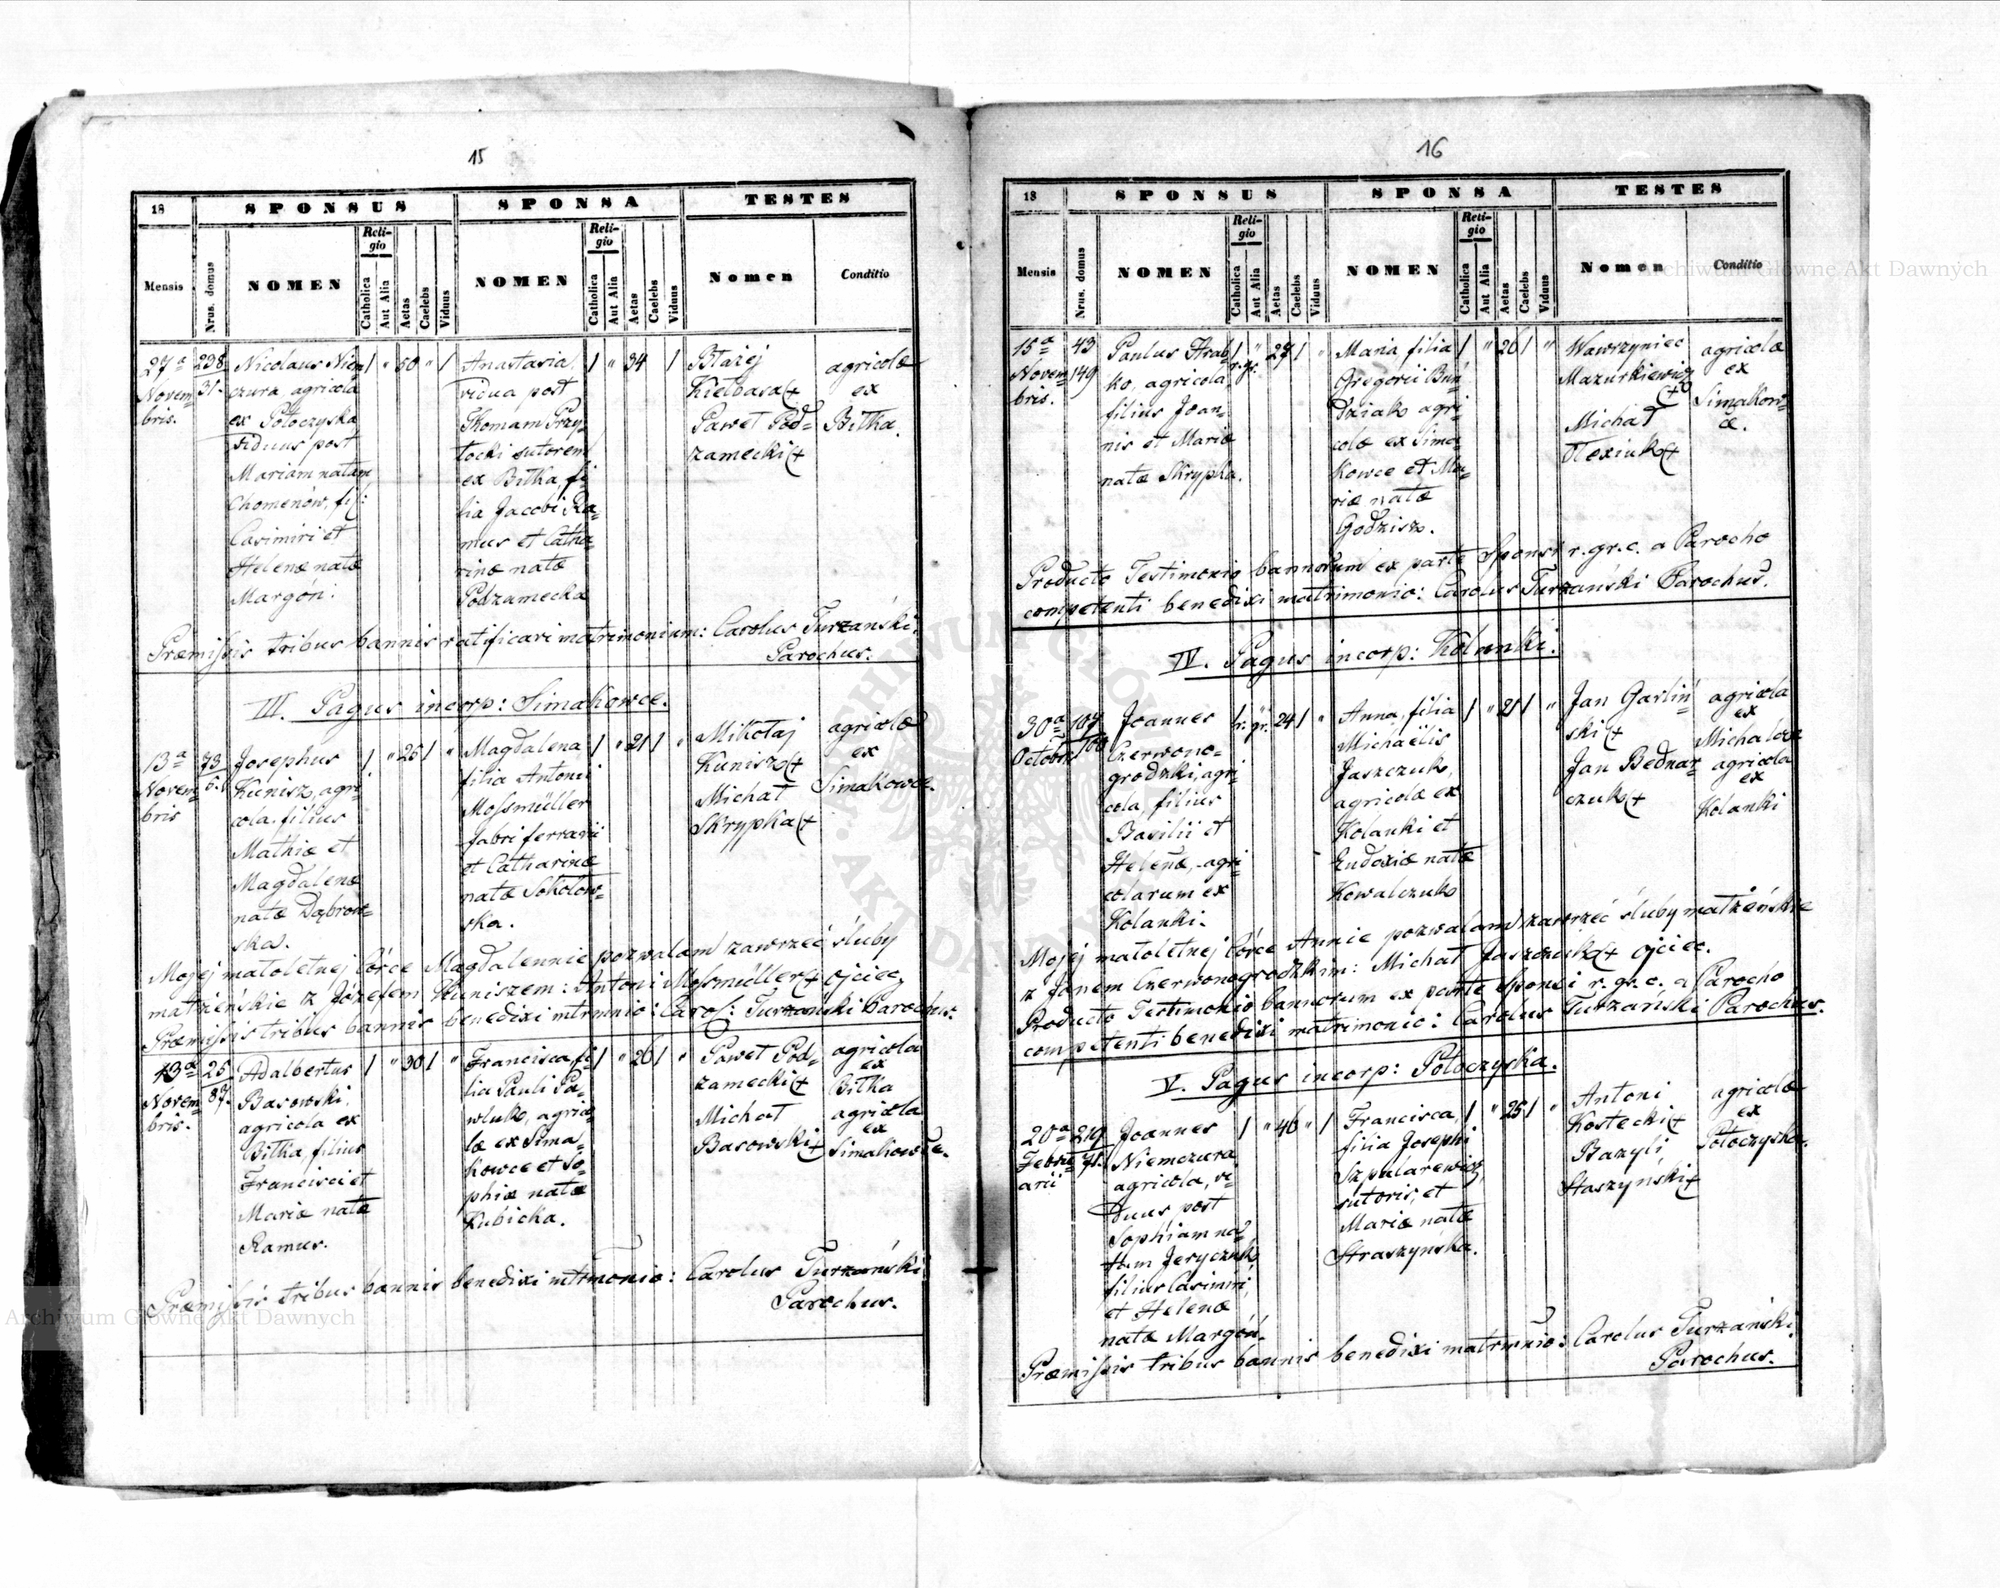 15
18
SPONSUS
SPONSA
TESTES
Mensis
Nrus. domus
NOMEN
Religio
Catholica
Aut Alia
Aetas
Caelebs
Viduus
NOMEN
Religio
Catholica
Aut Alia
Aetas
Caelebs
Viduus
Nomen
Conditio
27a
Novem=
bris.
238.
31.
Nicolaus Niem=
czura, agricola
ex Potoczyska
viduus post
Mariam natam
Chomenów, fil:
Casimiri et
Helenæ natæ
Margón.
1 " 50 " 1
Anastasia,
vidua post
Thomam Przy=
tocki sutorem
ex Bitka, fi=
lia Jacobi Ra=
mus et Catha=
rinæ natæ
Podzamecka
1 " 34 1
Błażej
Kiełbasa +
Paweł Pod=
zamecki +
agricolæ
ex
Bitka.
Præmissis tribus bannis ratificavi matrimonium: Carolus Turzański.
Parochus.
III. Pagus incorp: Simakowce.
13a
Novem=
bris
73
6.
Josephus
Kunisz, agri=
cola. filius
Mathiæ et
Magdalenæ
natæ Dąbrow=
ska.
1 " 25 1 "
Magdalena
filia Antonii
Mossmüller
fabri ferrarii
et Catharinæ
natæ Sokołow=
ska.
1 " 21 1 "
Mikołaj
Kunisz +
Michał
Skrypka +
agricolæ
ex
Simakowce.
Mojej małoletnej Córce Magdalennie pozwalam zawrzeć śluby
małżeńskie z Józefem Kuniszem: Antoni Mossmüller + ojciec
Præmissis tribus bannis benedixi mtrmnio: Carol: Turzański Parochus.
13a
Novem=
bris.
25
87.
Adalbertus
Basowski,
agricola ex
Bitka, filius
Francisci et
Mariæ natæ
Ramus.
1 " 30 1 "
Francisca, fi=
lia Pauli Pa=
wluk, agrico=
læ ex Sima=
kowce et So=
phiæ natæ
Kubicka.
1 " 26 1 "
Paweł Pod=
zamecki +
Michał
Basowski +
agricola
ex
Bitka
agricola
ex
Simakowce.
Præmissis tribus bannis benedixi mtrmonio: Carolus Turzański
Parochus.
16
18
SPONSUS
SPONSA
TESTES
Mensis
Nrus. domus
NOMEN
Religio
Catholica
Aut Alia
Aetas
Caelebs
Viduus
NOMEN
Religio
Catholica
Aut Alia
Aetas
Caelebs
Viduus
Nomen
Conditio
15a
Novem=
bris.
43
149
Paulus Hrab=
ko, agricola
filius Joan=
nis et Mariæ
natæ Skrypka.
1 r. gr. " 27 1 "
Maria filia
Gregorii Bun=
dziak agri=
colæ ex Sima=
kowce et Ma=
riæ natæ
Godzisz.
1 " 26 1 "
Wawrzyniec
Mazurkiewicz
+
Michał
Olexiuk +
agricolæ
ex
Simakow=
ce.
Producto Testimonio bannorum ex parte Sponsi r. gr. c. a Parocho
competenti benedixi matrimonio: Carolus Turzański Parochus.
IV. Pagus incorp: Kolanki.
30a
Octobris
107
100
Joannes
Czerwono=
grodzki, agri=
cola, filius
Basilii et
Helenæ, agri=
colarum ex
Kolanki.
r. gr. 24 1 "
Anna, filia
Michaëlis
Jaszczuk,
agricolæ ex
Kolanki et
Eudoxiæ natæ
Kowalczuk
1 " 21 1 "
Jan Garliń=
ski +
Jan Bednar=
czuk +
agricola
ex
agricola
ex
Kolanki
Mojej małoletnej Córce Annie pozwalam zawrzeć śluby małżeńskie
z Janem Czerwonogrodzkim: Michał Jaszczuk + ojciec.
Producto Testimonio bannorum ex parte Sponsi r. gr. c. a Parocho
competenti benedixi matrimonio: Carolus Turzański Parochus.
V. Pagus incorp: Potoczyska.
20a
Febru=
arii
219
71.
Joannes
Niemczura,
agricola, vi=
duus post
Sophiam na=
tam Jeryczuk
filius Casimiri,
et Helenæ
natæ Margón.
1 " 46 " 1
Francisca,
filia Josephi
Szpularewicz,
sutoris, et
Mariæ natæ
Straszyńska.
1 " 25 1 "
Antoni
Kostecki +
Bazyli
Staszyński +
agricolæ
ex
Potoczyska.
Præmissis tribus bannis benedixi matrmnio: Carolus Turzański
Parochus.
Archiwum Główne Akt Dawnych
Archiwum Główne Akt Dawnych
ARCHIWUM GŁÓWNE AKT DAWNYCH